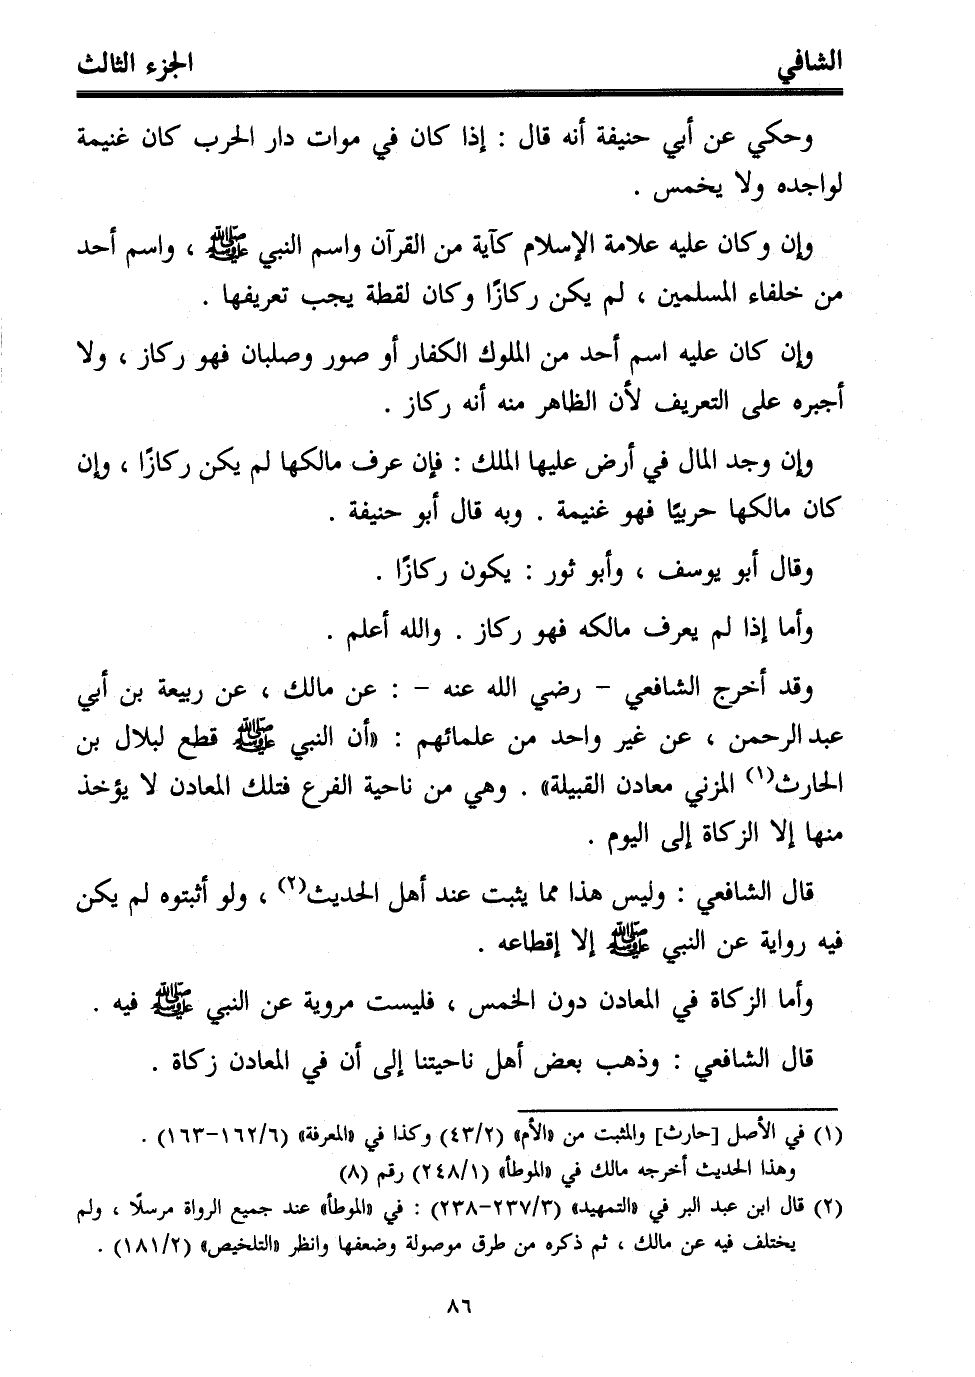 الشافي الجزء الثالث
وحكي عن أبي حنيفة أنه قال : إذا كان في موات دار الحرب كان غنيمة
لواجده ولا يخمس .
وإن وكان عليه علامة الإسلام كآية من القرآن واسم النبي ﷺ ، واسم أحد
من خلفاء المسلمين ، لم يكن ركازًا وكان لقطة يجب تعريفها .
وإن كان عليه اسم أحد من الملوك الكفار أو صور وصلبان فهو ركاز ، ولا
أجبره على التعريف لأن الظاهر منه أنه ركاز .
وإن وجد المال في أرض عليها الملك : فإن عرف مالكها لم يكن ركازًا ، وإن
كان مالكها حربيًا فهو غنيمة . وبه قال أبو حنيفة .
وقال أبو يوسف ، وأبو ثور : يكون ركازًا .
وأما إذا لم يعرف مالكه فهو ركاز . والله أعلم .
وقد أخرج الشافعي – رضي الله عنه – : عن مالك ، عن ربيعة بن أبي
عبد الرحمن ، عن غير واحد من علمائهم : «أن النبي ﷺ قطع لبلال بن
الحارث(١) المزني معادن القبيلة» . وهي من ناحية الفرع فتلك المعادن لا يؤخذ
منها إلا الزكاة إلى اليوم .
قال الشافعي : وليس هذا مما يثبت عند أهل الحديث(٢) ، ولو أثبتوه لم يكن
فيه رواية عن النبي ﷺ إلا إقطاعه .
وأما الزكاة في المعادن دون الخمس ، فليست مروية عن النبي ﷺ فيه .
قال الشافعي : وذهب بعض أهل ناحيتنا إلى أن في المعادن زكاة .
(١) في الأصل [حارث] والمثبت من «الأم» (٤٣/٢) وكذا في «المعرفة» (١٦٢/٦-١٦٣) .
وهذا الحديث أخرجه مالك في «الموطأ» (٢٤٨/١) رقم (٨)
(٢) قال ابن عبد البر في «التمهيد» (٢٣٧/٣-٢٣٨) : في «الموطأ» عند جميع الرواة مرسلًا ، ولم
يختلف فيه عن مالك ، ثم ذكره من طرق موصولة وضعفها وانظر «التلخيص» (١٨١/٢) .
٨٦